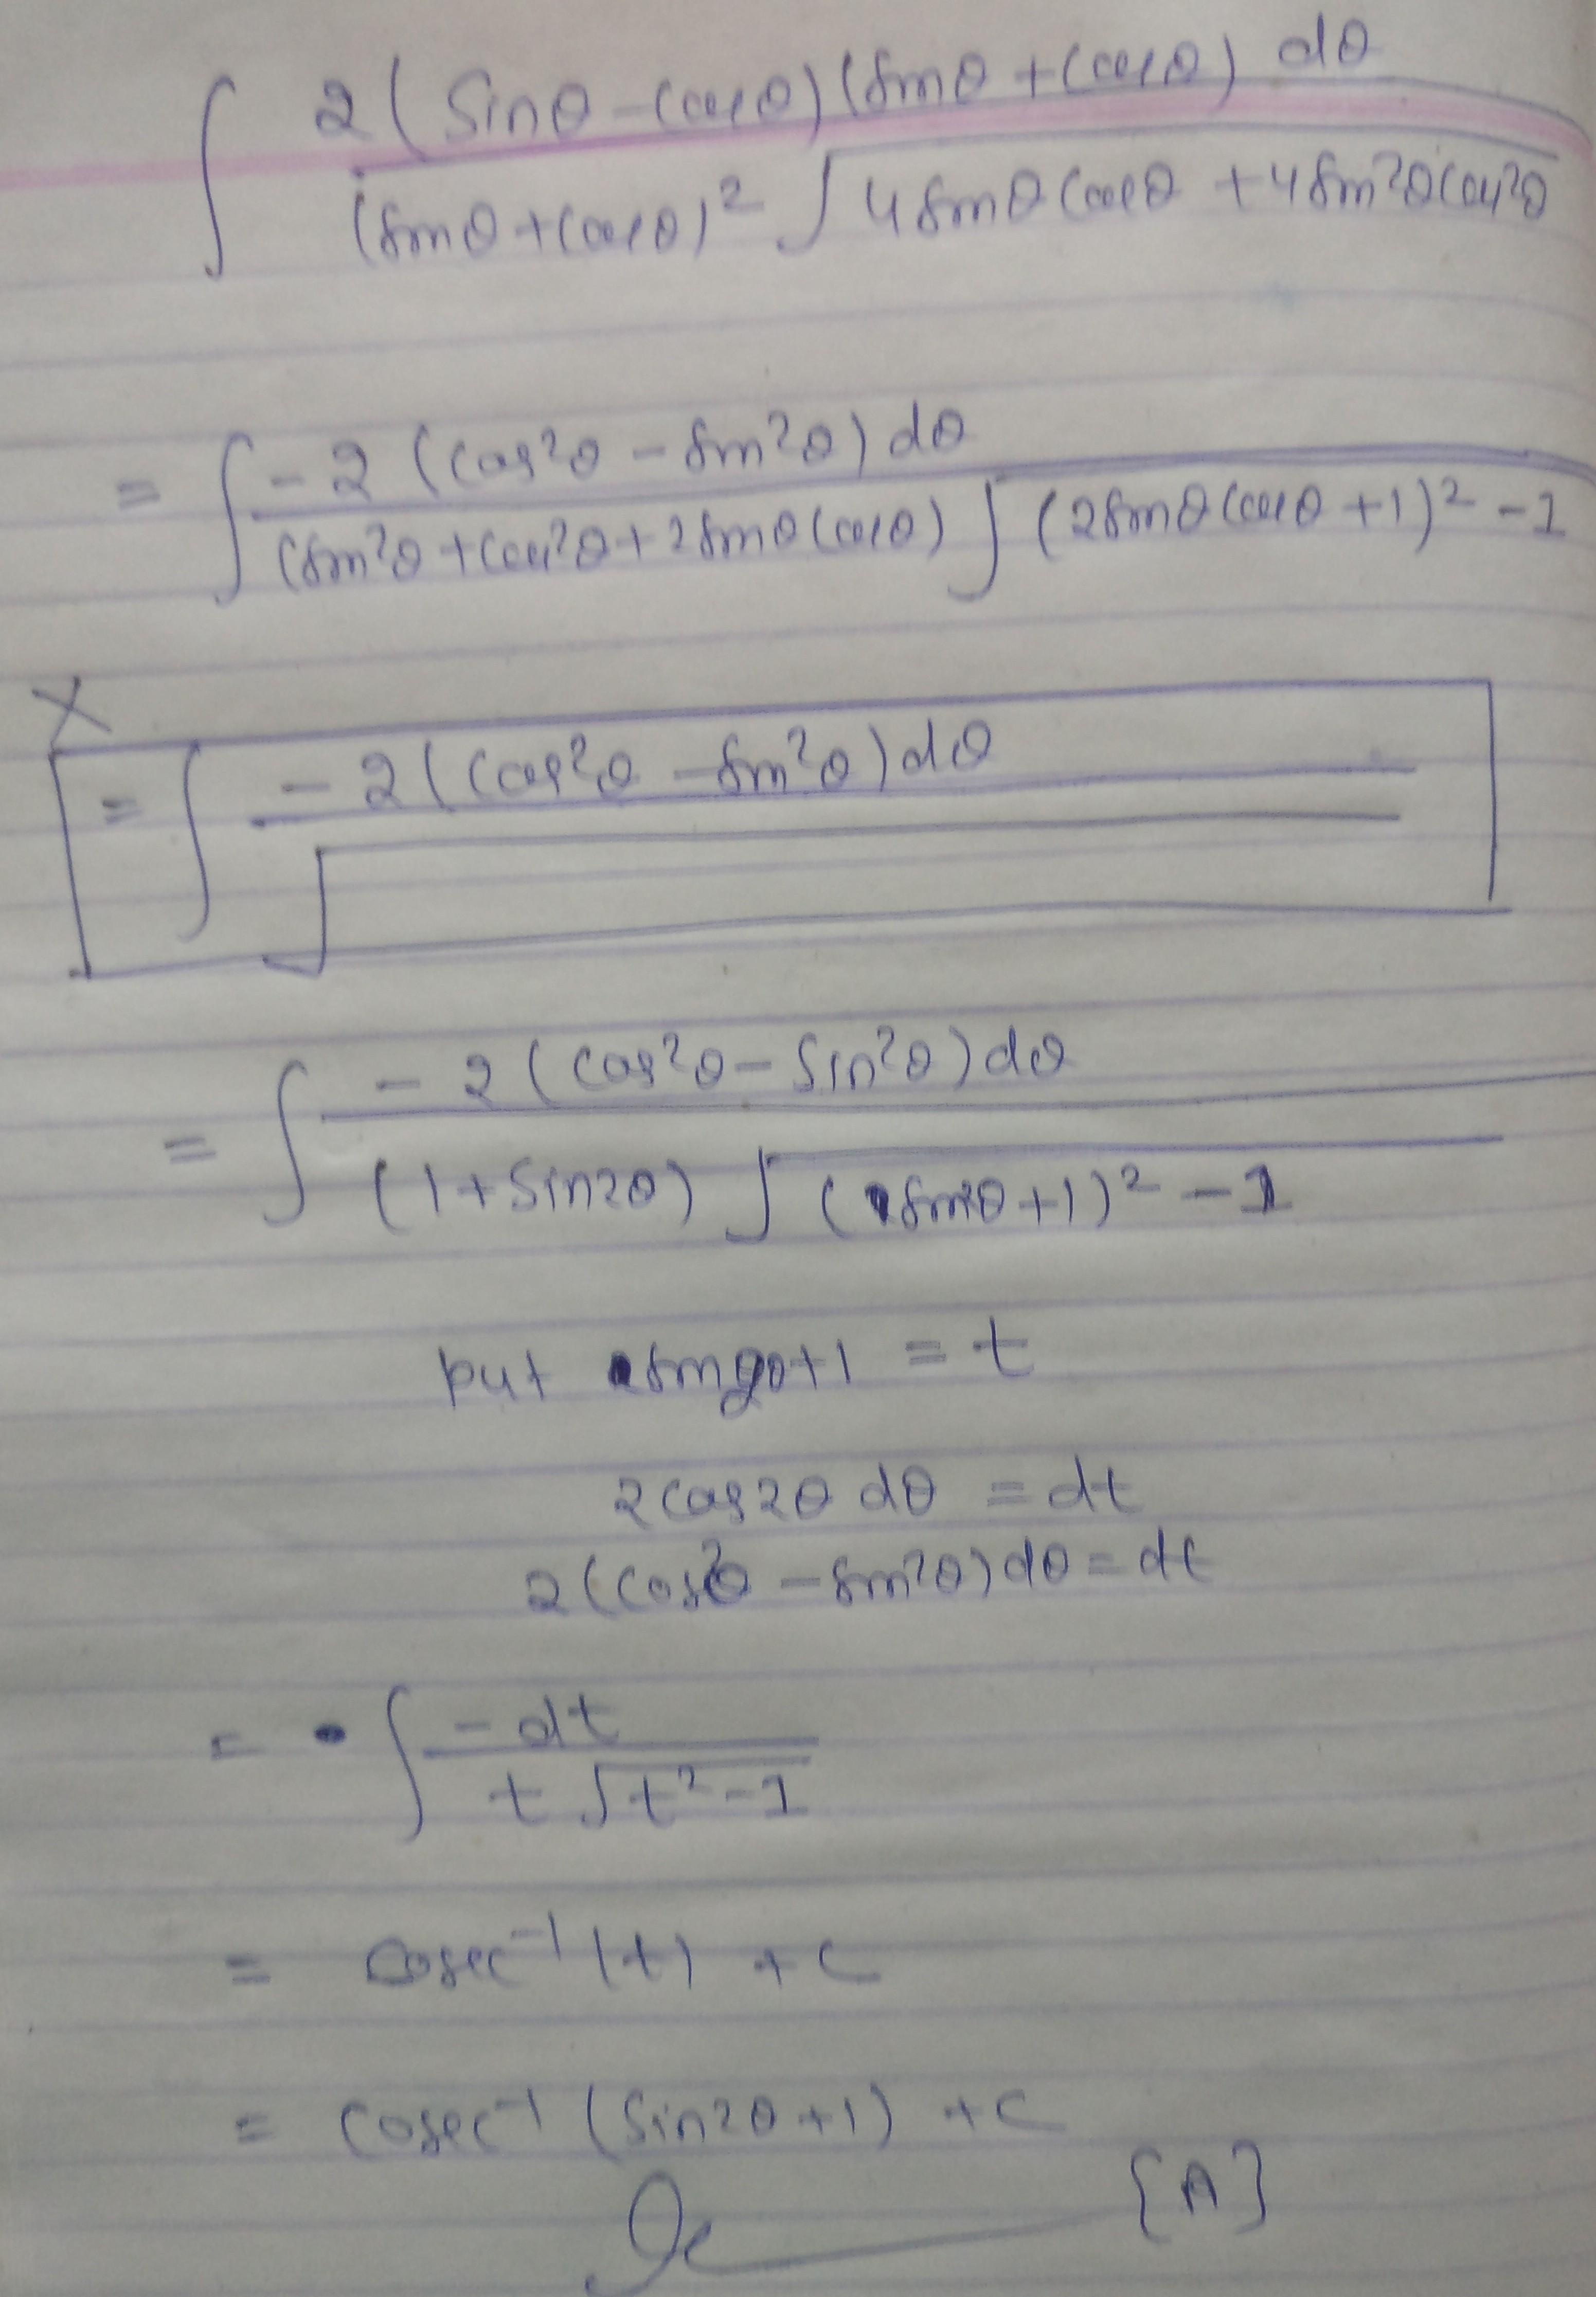 ∫ 2(Sinθ-cosθ)(sinθ+cosθ) dθ / (sinθ+cosθ)² √(4sinθcosθ+4sin²θcos²θ)
= ∫ -2(cos²θ-sin²θ)dθ / (sin²θ+cos²θ+2sinθcosθ) √((2sinθcosθ+1)²-1)
X
= ∫ -2(cos²θ-sin²θ)dθ / √
= ∫ -2(cos²θ-Sin²θ)dθ / (1+Sin2θ) √((sin2θ+1)²-1)
put sin2θ+1 = t
2cos2θ dθ = dt
2(cos²θ-sin²θ)dθ=dt
= ∫ -dt / t√(t²-1)
= cosec⁻¹(t) +c
= cosec⁻¹(Sin2θ+1) +c
{A}